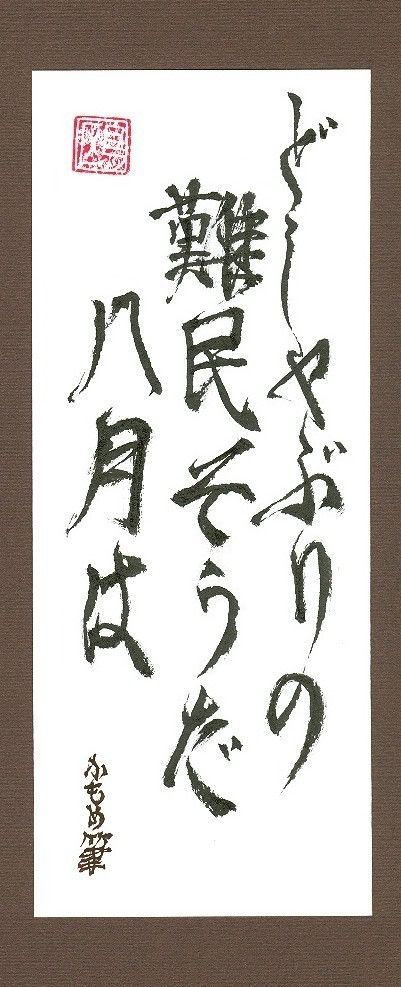 どしゃぶりの
難民そうだ
八月は
かもめ筆